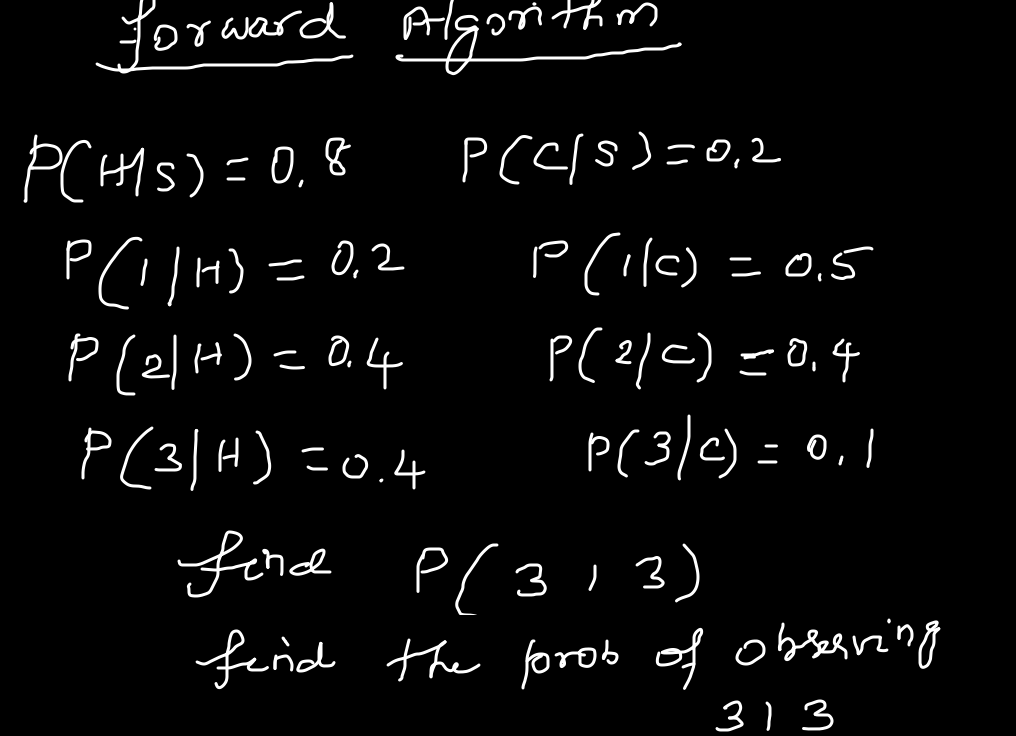 Forward Algorithm
P(H|S) = 0.8 P(C|S) = 0.2
P(1|H) = 0.2 P(1|C) = 0.5
P(2|H) = 0.4 P(2|C) = 0.4
P(3|H) = 0.4 P(3|C) = 0.1
find P(3 1 3)
find the prob of observing
3 1 3